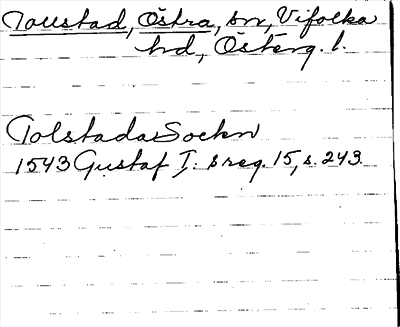 Toustad, Östra, sn, Vifolka
hd, Österg. l.
Tolstada Sockn
1543 Gustaf I:s reg. 15, s. 243.